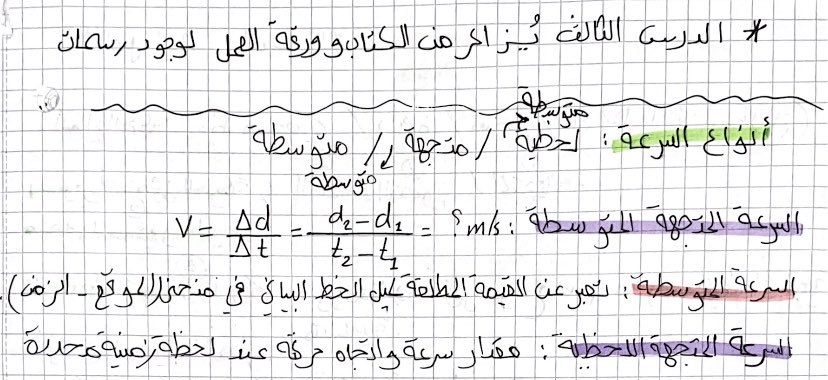 * الدرس الثالث يُذاكر من الكتاب و ورقة العمل لوجود رسمات
متوسطة
أنواع السرعة: لحظية / متجهة / متوسطة
متوسطة
السرعة المتجهة المتوسطة: V = Δd/Δt = d₂-d₁/t₂-t₁ = ? m/s
السرعة المتوسطة: تعبر عن القيمة المطلقة لميل الخط البياني في منحنى (الموقع - الزمن).
السرعة المتجهة اللحظية: مقدار سرعة واتجاه حركة عند لحظة زمنية محددة